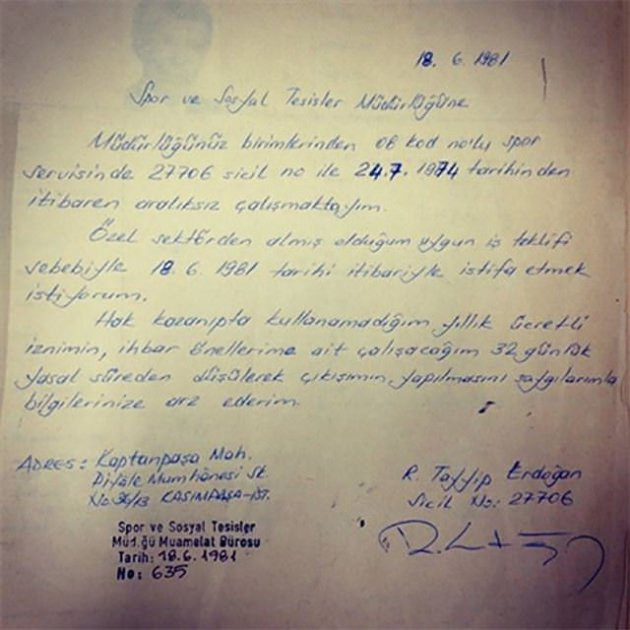 18. 6. 1981
Spor ve Sosyal Tesisler Müdürlüğüne
Müdürlüğünüz birimlerinden 06 kod no'lu spor
servisinde 27706 sicil no ile 24.7.1974 tarihinden
itibaren aralıksız çalışmaktayım.
Özel sektörden almış olduğum uygun iş teklifi
sebebiyle 18.6.1981 tarihi itibariyle istifa etmek
istiyorum.
Hak kazanıpta kullanamadığım yıllık ücretli
iznimin, ihbar önellerime ait çalışacağım 32 günlük
yasal süreden düşülerek çıkışımın yapılmasını saygılarımla
bilgilerinize arz ederim.
ADRES: Kaptanpaşa Mah.
Piyale Mumhanesi Sk.
No: KASIMPAŞA-İST.
R. Tayyip Erdoğan
Sicil No: 27706
Spor ve Sosyal Tesisler
Müd.ğü Muamelat Bürosu
Tarih: 18.6.1981
No: 635